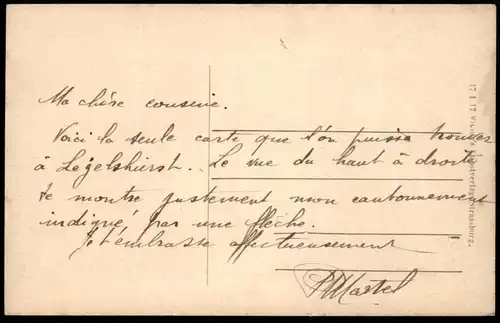 Ma chère cousine.
Voici la seule carte que l'on puisse trouver
à Legelshurst. Le vue du haut à droite
te montre justement mon cantonnement
indiqué par une flèche.
Je t'embrasse affectueusement
PMartel
Strassburg.